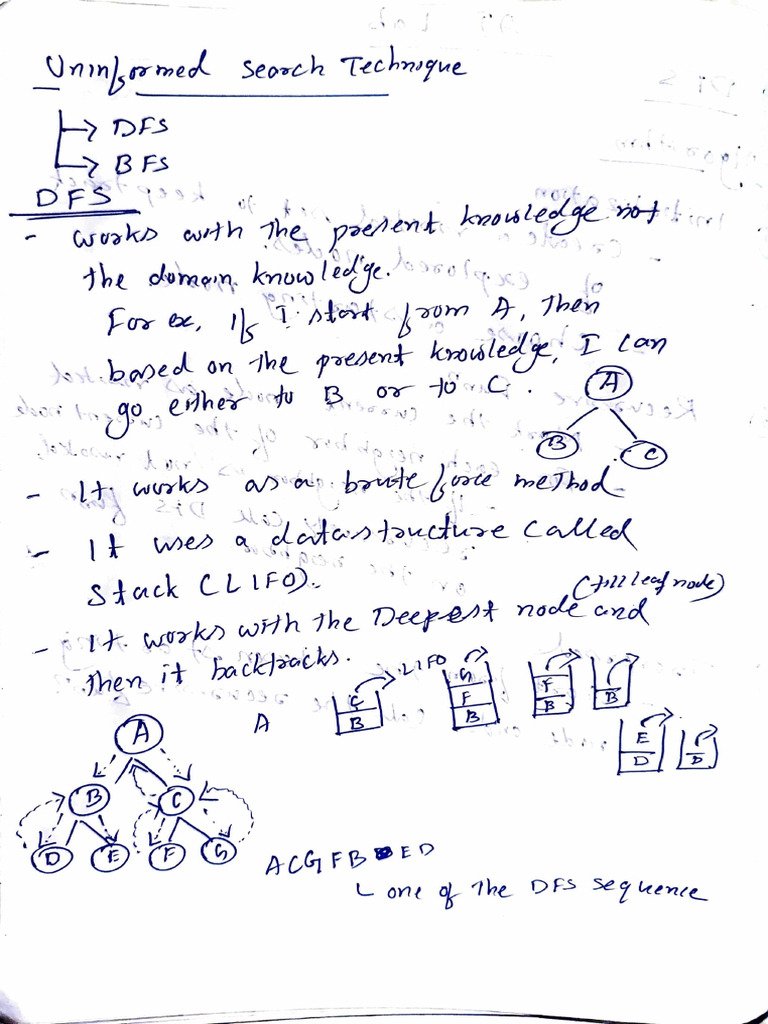 Uninformed Search Technique
DFS
BFS
DFS
- works with the present knowledge not
the domain knowledge.
For ex, If I start from A, then
based on the present knowledge, I can
go either to B or to C.
A
B C
- It works as a brute force method
- It uses a data structure called
Stack (LIFO).
(till leaf node)
- It works with the Deepest node and
then it backtracks.
LIFO
A
C
B
G
F
B
F
B
B
E
D
D
A
B C
D E F G
ACGFB ED
one of the DFS sequence